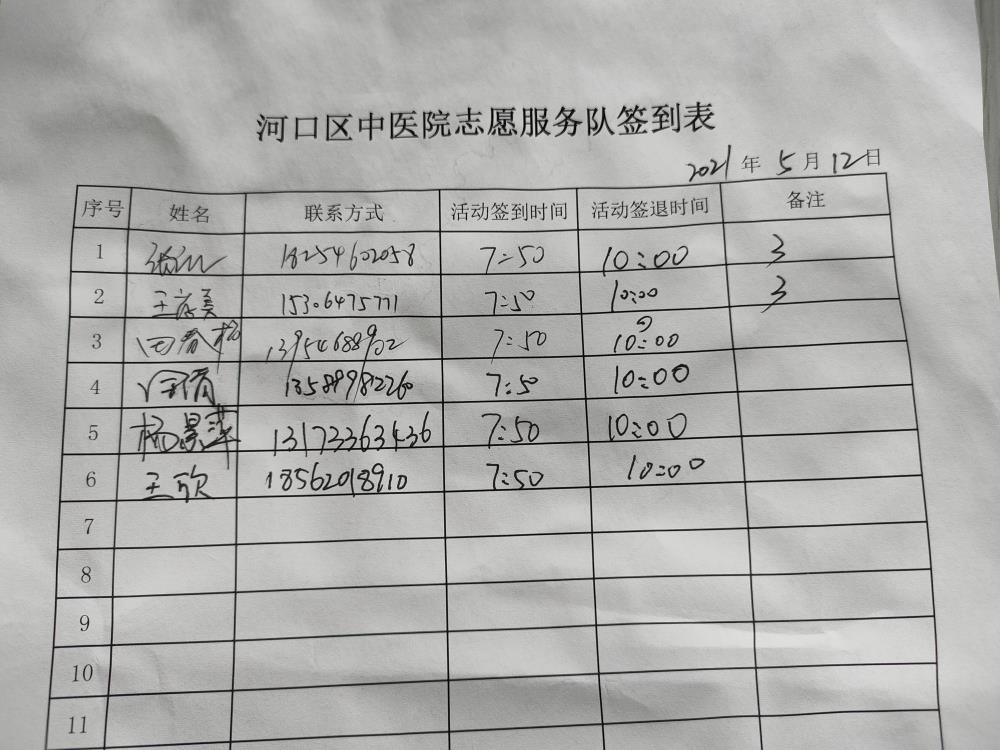 河口区中医院志愿服务队签到表
2021 年 5 月 12 日
序号 姓名 联系方式 活动签到时间 活动签退时间 备注
1 18254602058 7:50 10:00 3
2 15306475771 7:50 10:00 3
3 田春松 13954688902 7:50 10:00
4 13589982260 7:50 10:00
5 杨景萍 13173363436 7:50 10:00
6 王欣 18562018910 7:50 10:00
7
8
9
10
11